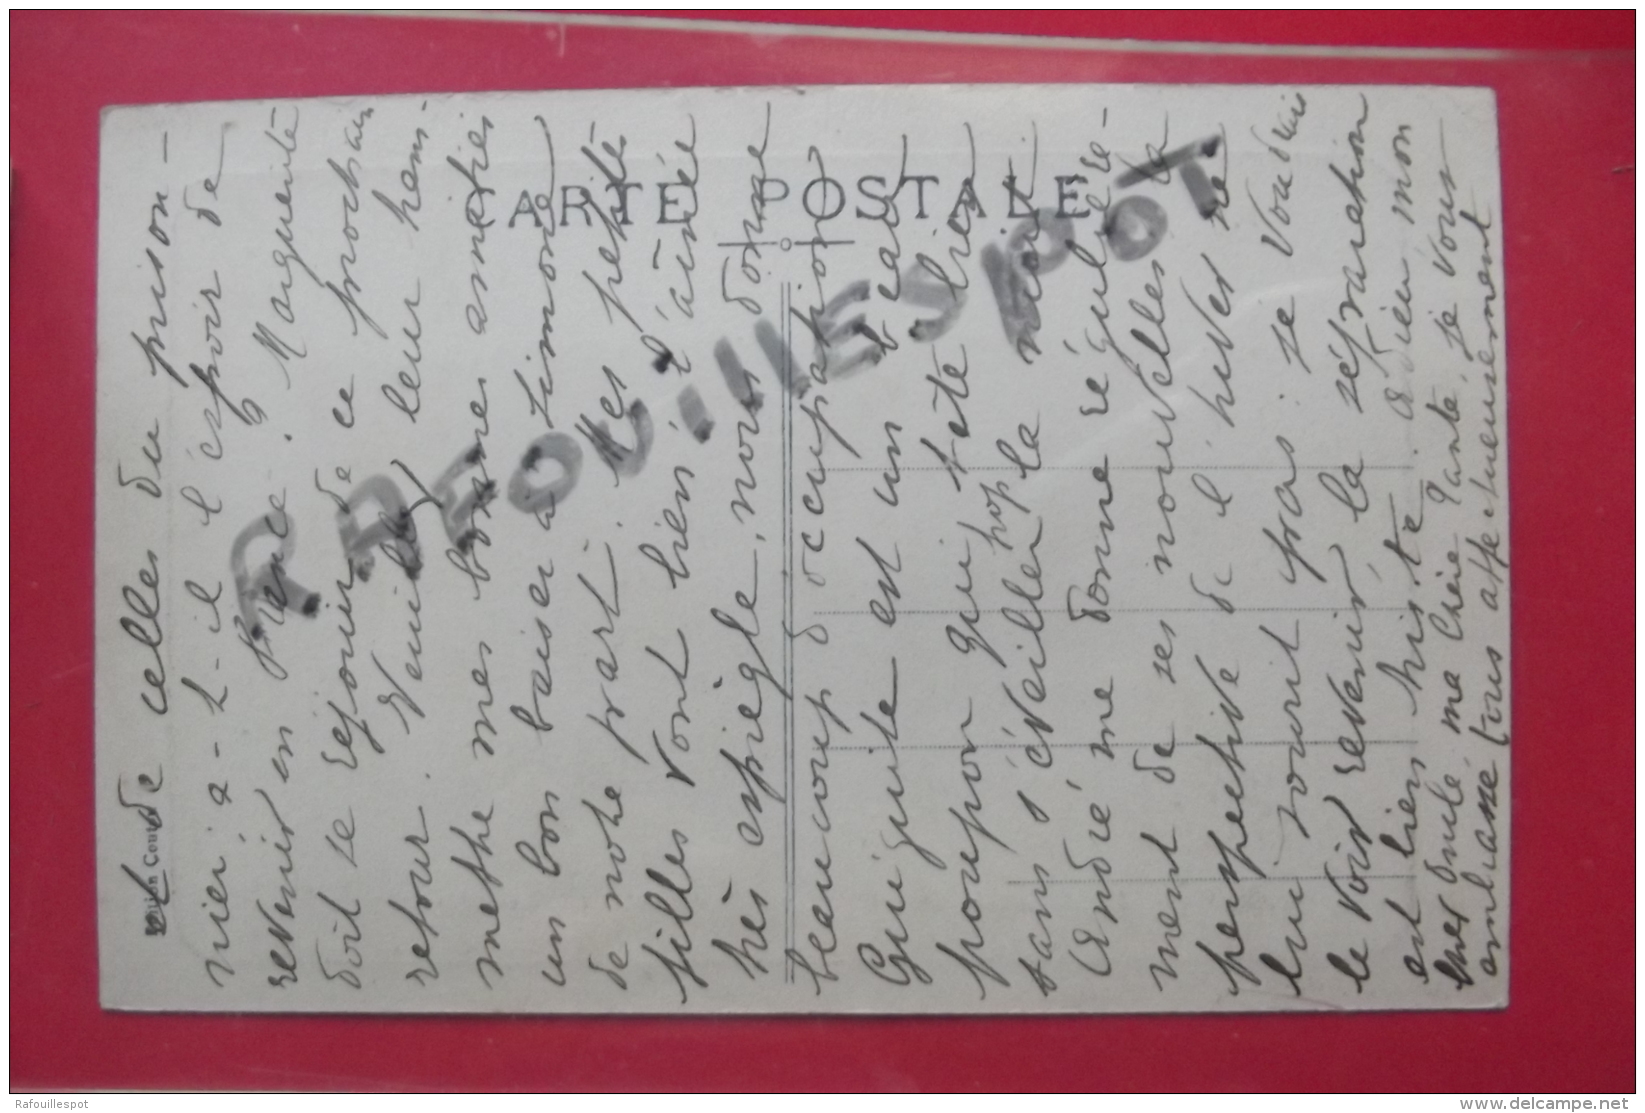 et de celles du prison-
nier a-t-il l'espoir de
revenir en France. Marguerite
doit se réjouir de ce prochain
retour. Veuillez leur trans-
mettre mes bonnes amitiés
un bon baiser à Simone
de notre part. Mes petites
filles vont bien l'aînée
très espiègle, nous donne
beaucoup d'occupation
Guiguite est un beau
poupon qui tête bien
sans s'éveiller trop la nuit.
André me donne régulière-
ment de ses nouvelles la
perspective de l'hiver ne
lui sourit pas. Je voudrais
le voir revenir, la séparation
est bien triste. Adieu mon
cher Emile, ma chère Tante, je vous
embrasse tous affectueusement
CARTE POSTALE
Edition Cou
RAFOUILLESPOT
Rafouillespot
www.delcampe.net